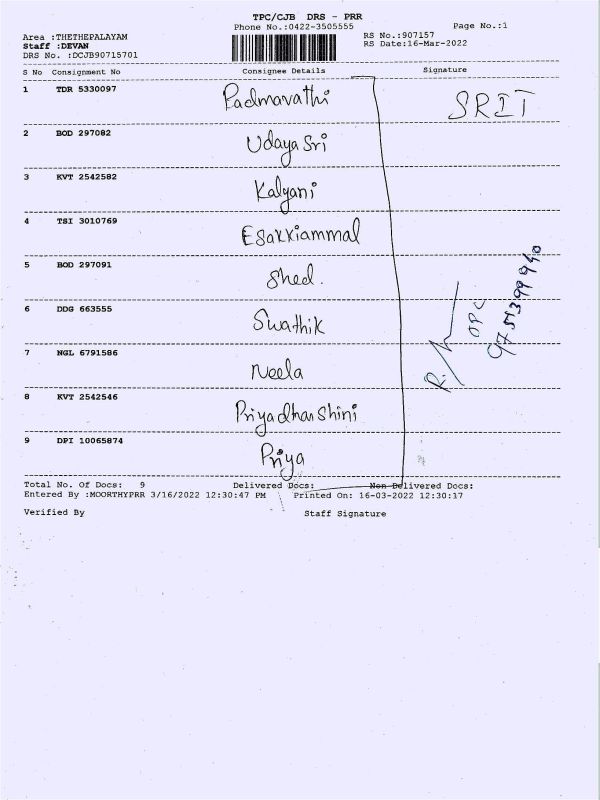 TPC/CJB DRS - PRR
Phone No.:0422-3505555
Page No.:1
Area :THETHEPALAYAM
RS No.:907157
Staff :DEVAN
RS Date:16-Mar-2022
DRS No. :DCJB90715701
S No Consignment No Consignee Details Signature
1 TDR 5330097 Padmavathi SRIT
2 BOD 297082 Udaya Sri
3 KVT 2542582 Kalyani
4 TSI 3010769 Esakkiammal
5 BOD 297091 Shed.
6 DDG 663555 Swathik
7 NGL 6791586 Neela
8 KVT 2542546 Priyadharshini
9 DPI 10065874 Priya
Total No. Of Docs: 9 Delivered Docs: Non Delivered Docs:
Entered By :MOORTHYPRR 3/16/2022 12:30:47 PM Printed On: 16-03-2022 12:30:17
Verified By Staff Signature